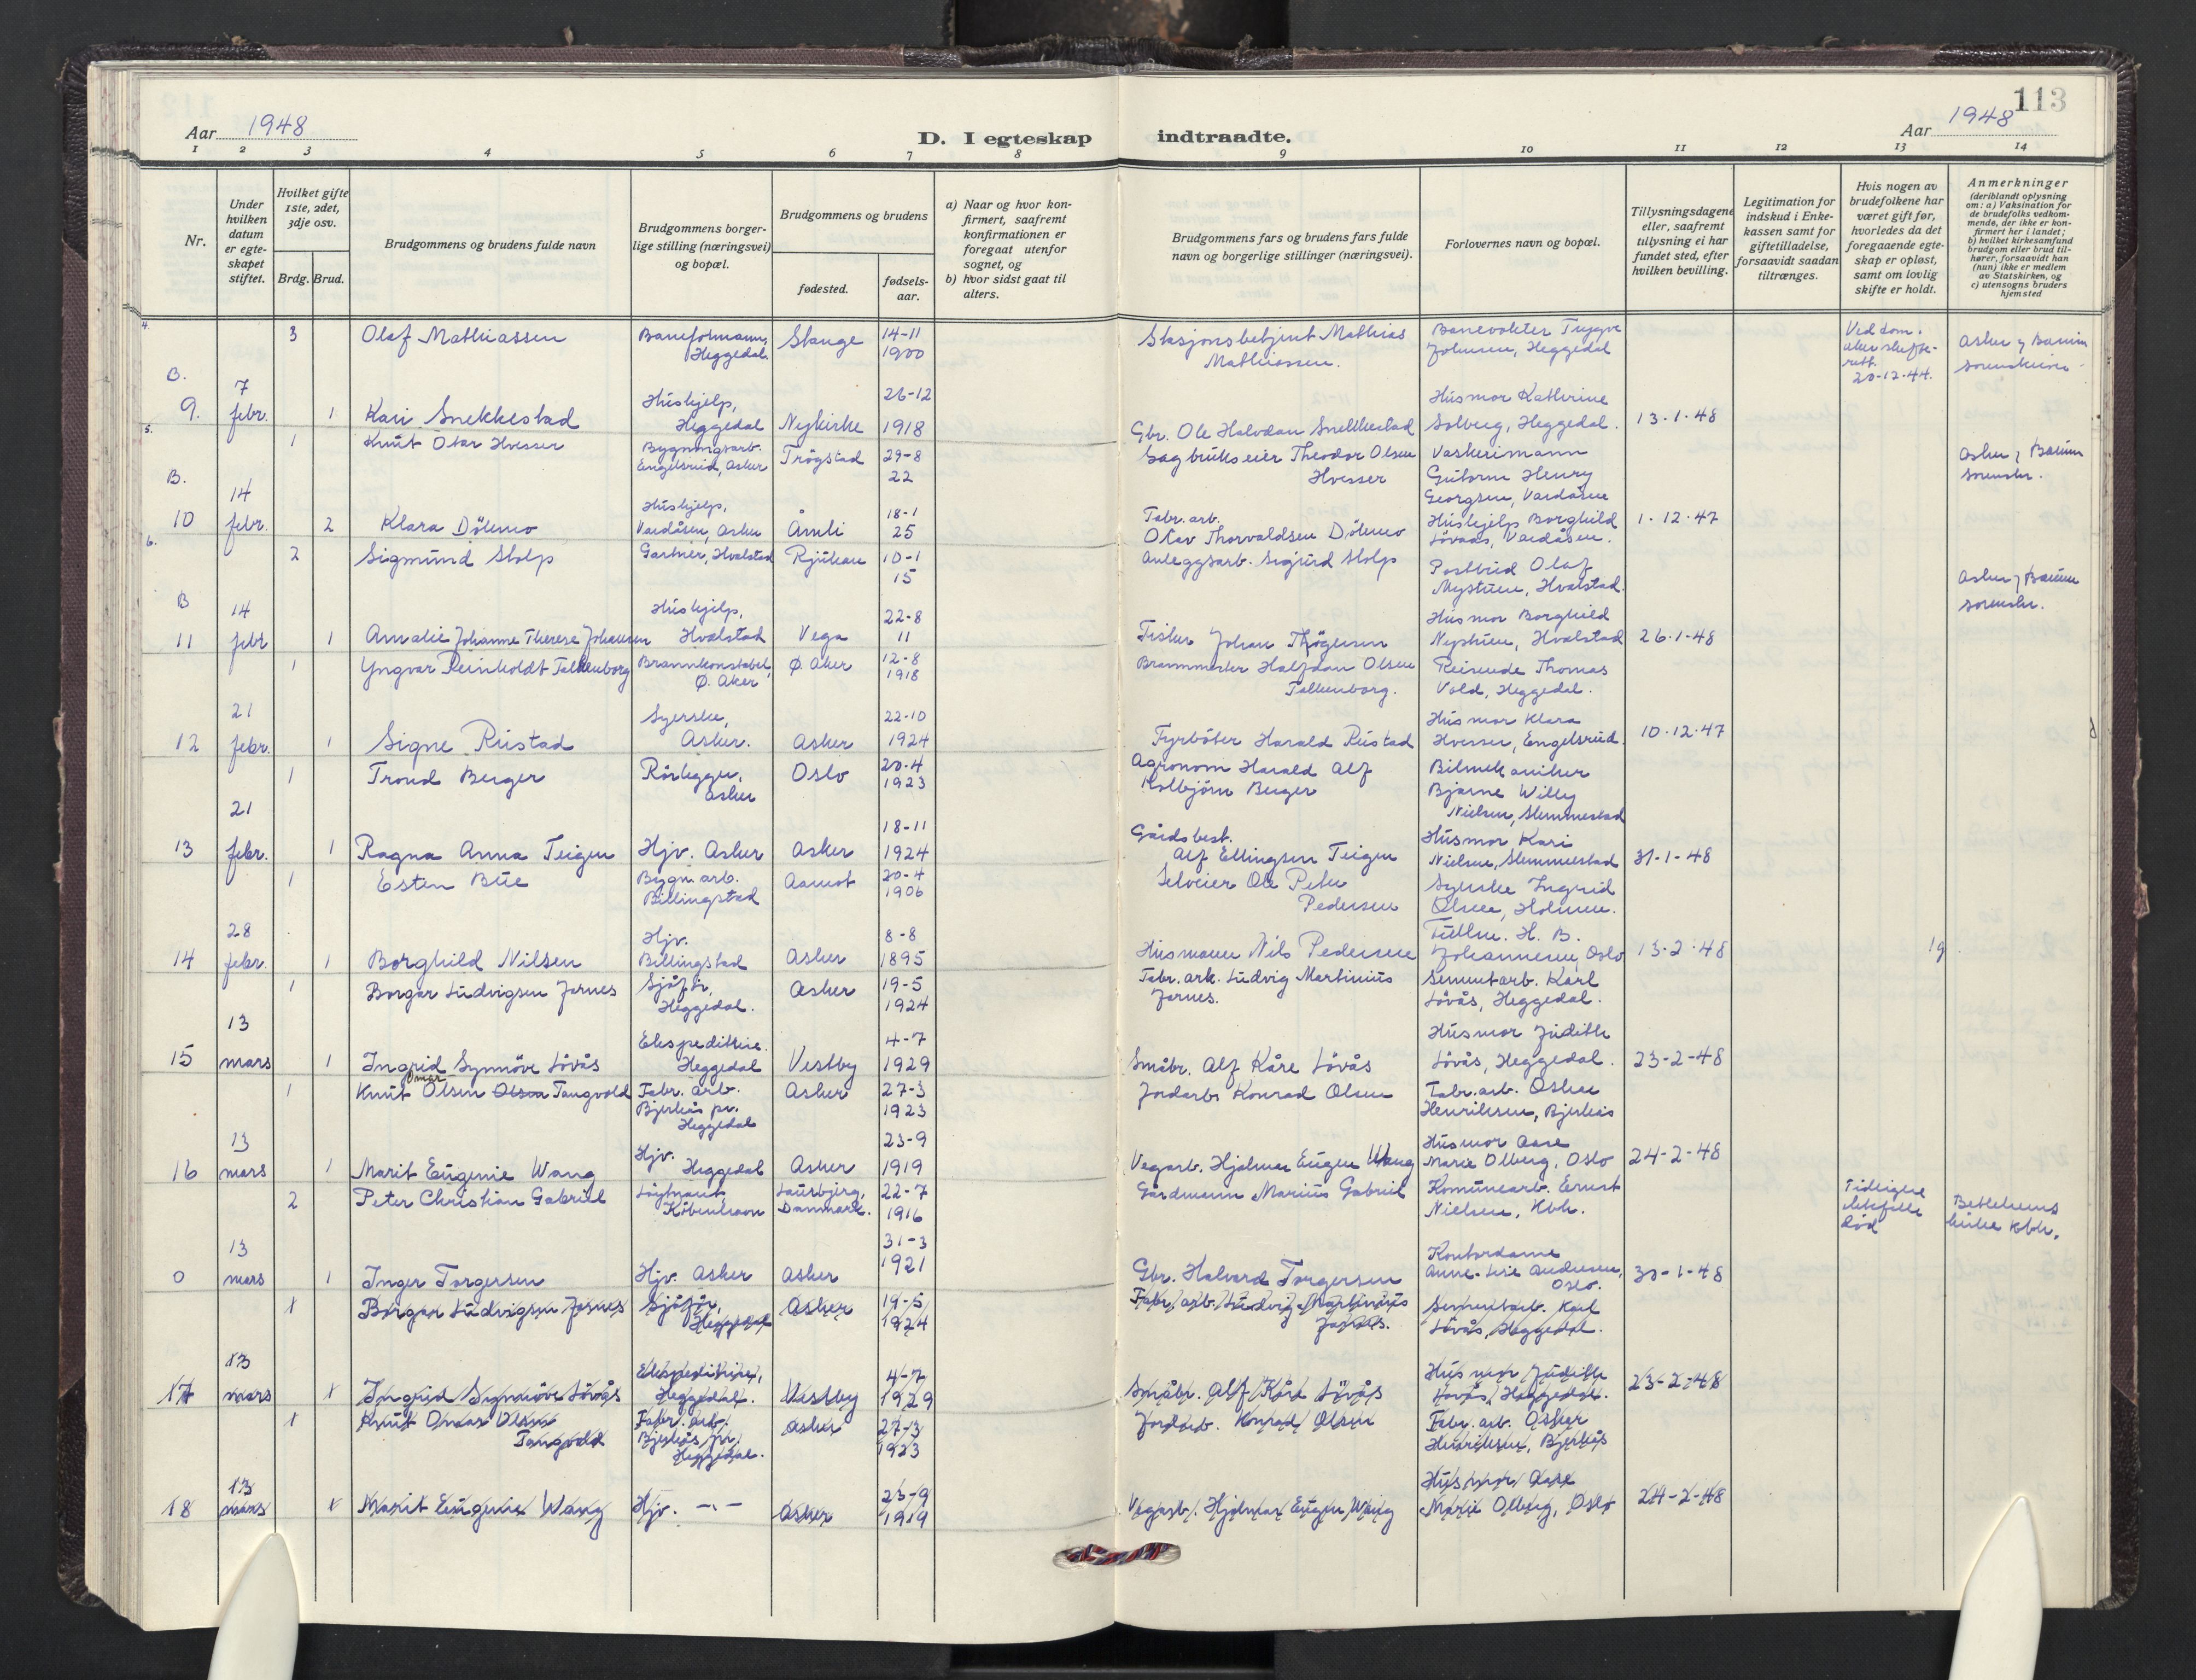 113
Aar 1948
D. I egteskap indtraadte.
Aar 1948
1 2 3 4 5 6 7 8 9 10 11 12 13 14
Nr.
Under hvilken datum er egte-skapet stiftet.
Hvilket gifte 1ste, 2det, 3dje osv.
Brdg. Brud.
Brudgommens og brudens fulde navn
Brudgommens borger-lige stilling (næringsvei) og bopæl.
Brudgommens og brudens
fødested.
fødsels-aar.
a) Naar og hvor kon-firmert, saafremt konfirmationen er foregaat utenfor sognet, og
b) hvor sidst gaat til alters.
Brudgommens fars og brudens fars fulde navn og borgerlige stillinger (næringsvei).
Forlovernes navn og bopæl.
Tillysningsdagene eller, saafremt tillysning ei har fundet sted, efter hvilken bevilling.
Legitimation for indskud i Enke-kassen samt for giftetilladelse, forsaavidt saadan tiltrænges.
Hvis nogen av brudefolkene har været gift før, hvorledes da det foregaaende egte-skap er opløst, samt om lovlig skifte er holdt.
Anmerkninger
(deriblandt oplysning om: a) Vaksination for de brudefolks vedkom-mende, der ikke er kon-firmert her i landet; b) hvilket kirkesamfund brudgom eller brud til-hører, forsaavidt han (hun) ikke er medlem av Statskirken, og c) utensogns bruders hjemsted
4. 3 Olaf Mathiassen Baneformann, Heggedal. Stange 14-11 1900 Stasjonsbetjent Mathias Mathiassen. Banevokter Trygve Johnsen, Heggedal Ved dom. 20-12-44. Asker og Bærum
B. 9. 7 febr. 1 Kari Snekkestad Hushjelp, Heggedal Nykirke 26-12 1918 Gbr. Ole Halvdan Snekkestad Husmor Kathrine Solberg, Heggedal. 13-1-48
5. 1 Knut Otar Hvesser Bygningsarb. Engelsrud, Asker Trögstad 29-8 22 Sagbrukseier Theodor Olsen Hvesser Vaskerimann Guttorm Henry Georgsen, Vardåsen Asker, Bærum sorenskr.
B. 10 14 febr. 2 Klara Dölemo Hushjelp, Vardåsen, Asker Åmli 18-1 25 Fabr. arb. Olav Thorvaldsen Dölemo Hushjelp Borghild Lövaas, Vardåsen. 1-12-47
6. 2 Sigmund Stolp Gartner, Hvalstad Rjukan 10-1 15 Anleggsarb. Sigurd Stolp Postbud Olaf Nystuen, Hvalstad. Asker, Bærum sorenskr.
B 11 14 febr 1 Amalie Johanne Therese Johansen Hushjelp, Hvalstad Vega 22-8 11 Fisker Johan Thögersen Husmor Borghild Nystuen, Hvalstad 26-1-48
1 Yngvar Reinholdt Falkenborg Brannkonstabel, Ø. Aker Ø. Aker 12-8 1918 Brannmester Halfdan Olsen Falkenborg. Reisende Thomas Vold, Heggedal.
12 21 febr. 1 Signe Rustad Syerske, Asker. Asker 22-10 1924 Fyrböter Harald Rustad Husmor Klara Hvesser, Engelsrud. 10-12-47
1 Trond Berger Rörlegger, Asker Oslo 20-4 1923 Agronom Harald Alf Kolbjörn Berger Bilmekaniker Bjarne Willy Nielsen, Slemmestad
13 21 febr. 1 Ragna Anna Teigen Hjv. Asker Asker 18-11 1924 Gårdsbest. Alf Ellingsen Teigen Husmor Kari Nielsen, Slemmestad 31-1-48
1 Esten Bue Bygn. arb. Billingstad Aamot 20-4 1906 Selveier Ole Peter Pedersen Syerske Ingrid Olsen, Holmen.
14 28 febr. 1 Borghild Nilsen Hjv. Billingstad Asker 8-8 1895 Husmann Nils Pedersen Fullm. H. B. Johannesen, Oslo 13-2-48 19
1 Borgar Ludvigsen Jarnes Sjåför, Heggedal. Asker 19-5 1924 Fabr. arb. Ludvig Martinius Jarnes. Sementarb. Karl Lövås, Heggedal.
15 13 mars 1 Ingrid Synnöve Lövås Ekspeditrise. Heggedal Vestby 4-7 1929 Småbr. Alf Kåre Lövås Husmor Judith Lövås, Heggedal. 23-2-48
1 Knut Omar Olsen Olsen Tangvold Fabr. arb. Bjerkås pr. Heggedal Asker 27-3 1923 Jordarb. Konrad Olsen Fabr. arb. Oskar Henriksen, Bjerkås
16 13 mars 1 Marit Eugenie Wang Hjv. Heggedal Asker 23-9 1919 Vegarb. Hjalmar Eugen Wang Husmor Aase Marie Olberg, Oslo 24-2-48
2 Peter Christian Gabriel Löytnant, København Danmark. 22-7 1916 Gårdmann Marius Gabriel Komunearb. Ernst Nielsen, Kbh. Tidligere ektefelle död Betlehems kirke Kbh.
0 13 mars 1 Inger Torgersen Hjv. Asker Asker 31-3 1921 Gbr. Halvard Torgersen Kontordame Anne-Lise Andersen, Oslo. 30-1-48
1 Borgar Ludvigsen Jarnes Sjåför, Heggedal Asker 19-5 1924 Fabr. arb. Ludvig Martinius Jarnes. Sementarb. Karl Lövås, Heggedal.
17 13 mars 1 Ingrid Synnöve Lövås Ekspeditrise, Heggedal. Vestby 4-7 1929 Småbr. Alf Kåre Lövås Husmor Judith Lövås, Heggedal. 23-2-48
1 Knut Omar Olsen Tangvold Fabr. arb. Bjerkås pr. Heggedal. Asker 27-3 1923 Jordarb. Konrad Olsen Fabr. arb. Oskar Henriksen, Bjerkås
18 13 mars 1 Marit Eugenie Wang Hjv. -"- Asker 23-9 1919 Vegarb. Hjalmar Eugen Wang Husmor Aase Marie Olberg, Oslo 24-2-48